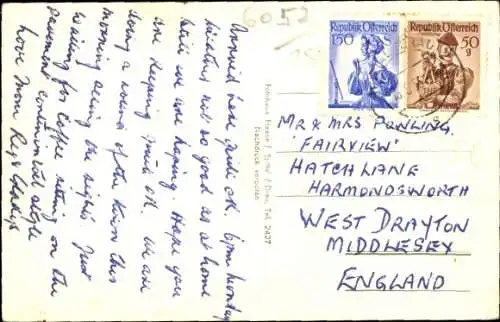 Arrived here quite O.K. 6pm Monday
not so good as at home
still we are hoping. Hope you
are keeping quite O.K. We are
doing a round of the town this
morning seeing the sights. Just
waiting for coffee sitting on the
pavement continental style
Love from Reg & Gladys
6052
Nachdruck verboten
Republik Österreich
150
g
Republik Österreich
50
g
MR & MRS POWLING.
'FAIRVIEW'
HATCH LANE
HARMONDSWORTH
WEST DRAYTON
MIDDLESEX
ENGLAND